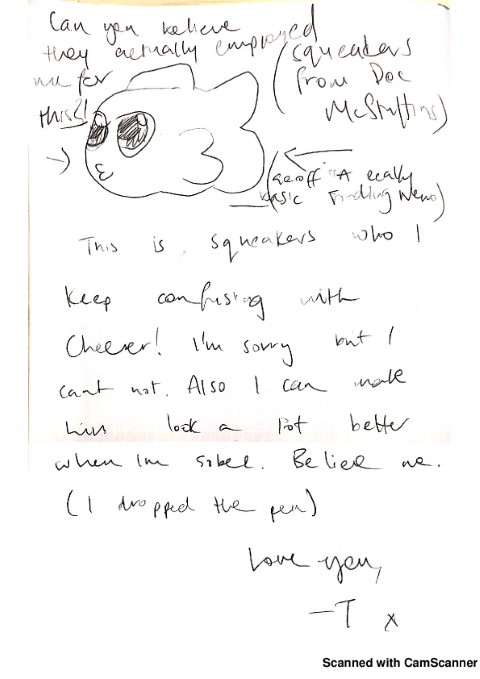 Can you believe
they actually employed
me for
this?!
(squeakers
from Doc
McStuffins)
(Geoff "A really
basic Finding Nemo)
This is squeakers who I
keep confusing with
Cheezer! I'm sorry but I
cant not. Also I can make
him look a lot better
when Im sober. Believe me.
(I dropped the pen)
Love you,
-T x
Scanned with CamScanner